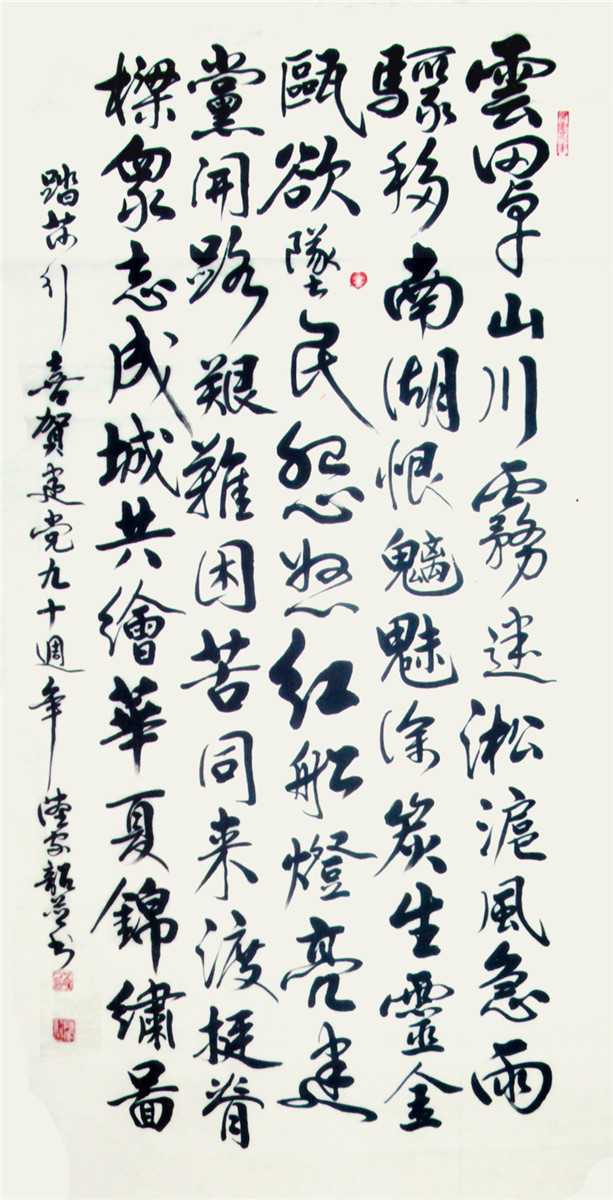 雲罩山川霧迷淞滬風急雨
驟移南湖恨魑魅涂炭生靈金
甌欲墜民怨怒紅船燈亮建
黨開路艱難困苦同来渡挺脊
樑衆志成城共繪華夏錦繡啚
踏莎行 喜賀建党九十週年 陸家韶并书